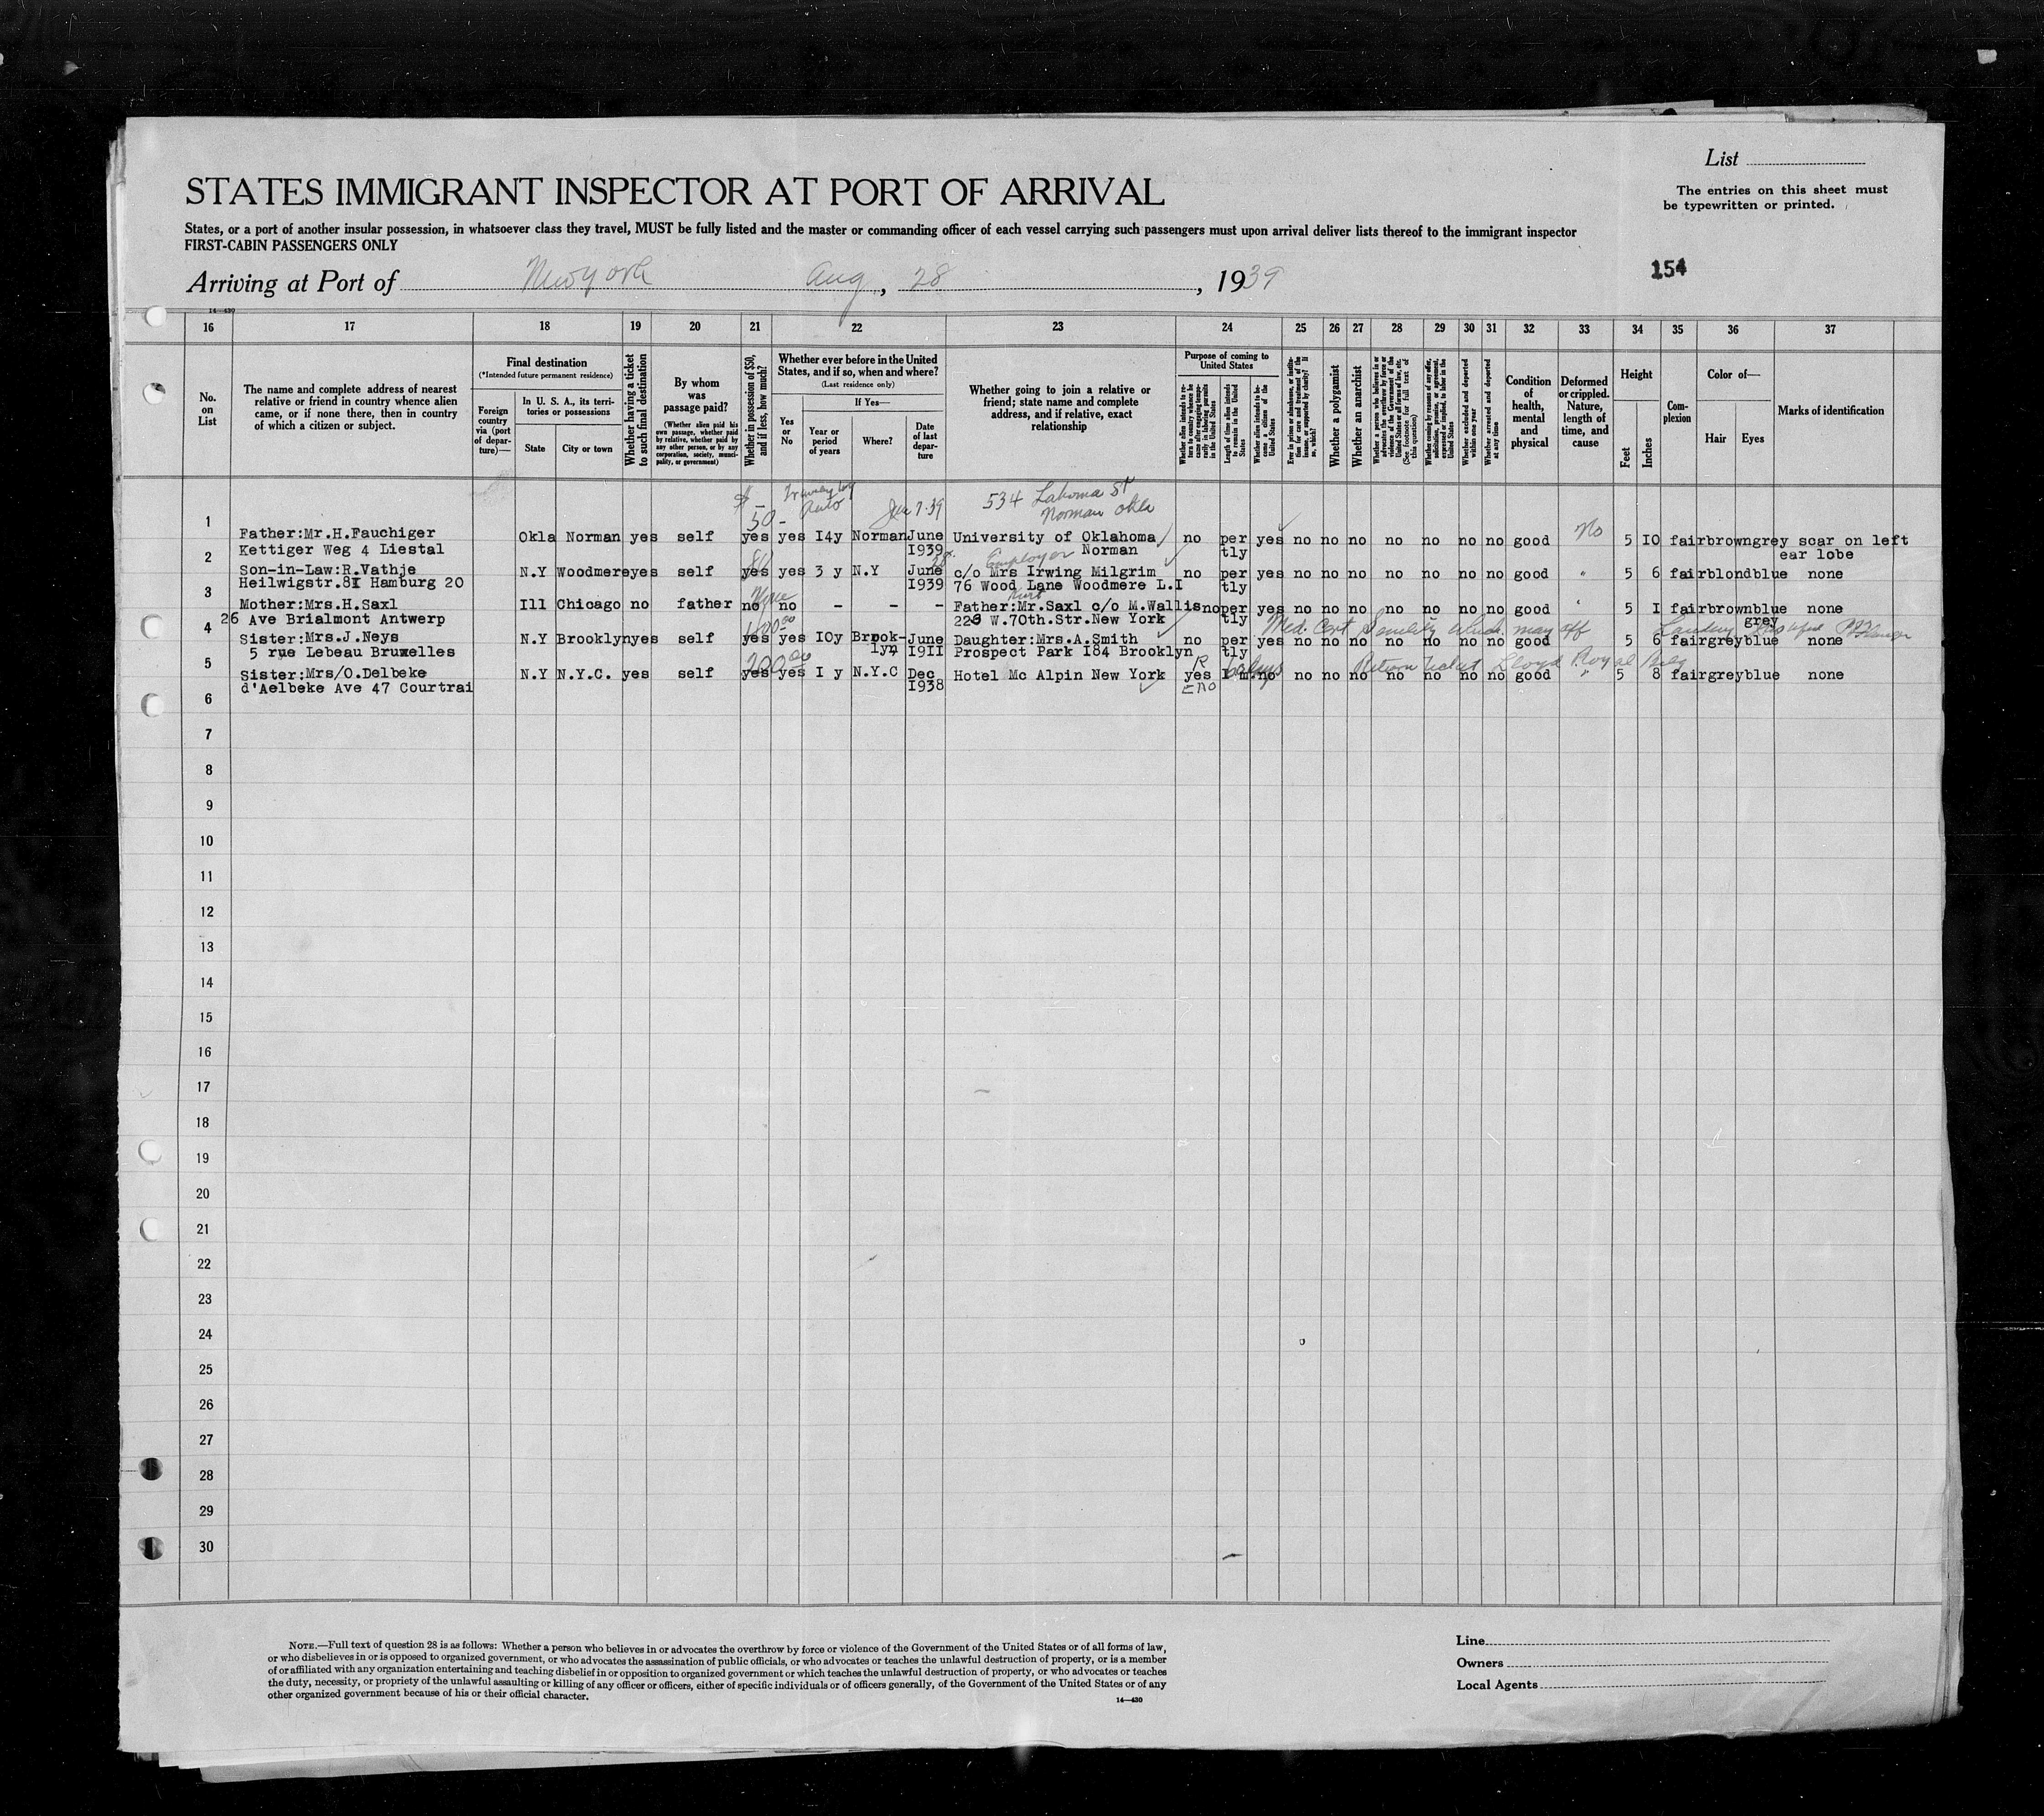 List
STATES IMMIGRANT INSPECTOR AT PORT OF ARRIVAL
The entries on this sheet must
be typewritten or printed.
States, or a port of another insular possession, in whatsoever class they travel, MUST be fully listed and the master or commanding officer of each vessel carrying such passengers must upon arrival deliver lists thereof to the immigrant inspector
FIRST-CABIN PASSENGERS ONLY
154
Arriving at Port of New York Aug, 28, 1939
14—430
16 17 18 19 20 21 22 23 24 25 26 27 28 29 30 31 32 33 34 35 36 37
No. on List
The name and complete address of nearest relative or friend in country whence alien came, or if none there, then in country of which a citizen or subject.
Final destination
(*Intended future permanent residence)
Foreign country via (port of departure)—
In U. S. A., its territories or possessions
State
City or town
Whether having a ticket to such final destination
By whom was passage paid?
(Whether alien paid his own passage, whether paid by relative, whether paid by any other person, or by any corporation, society, municipality, or government)
Whether in possession of $50, and if less, how much?
Whether ever before in the United States, and if so, when and where?
(Last residence only)
Yes or No
If Yes—
Year or period of years
Where?
Date of last departure
Whether going to join a relative or friend; state name and complete address, and if relative, exact relationship
Purpose of coming to United States
Length of time alien intends to remain in the United States
Whether alien intends to become a citizen of the United States
Whether a polygamist
Whether an anarchist
Whether excluded and deported within one year
Whether arrested and deported at any time
Condition of health, mental and physical
Deformed or crippled. Nature, length of time, and cause
Height
Feet
Inches
Complexion
Color of—
Hair
Eyes
Marks of identification
$ 50 - Auto 534 Lahoma St
Norman Okla
1 Father:Mr.H.Fauchiger Okla Norman yes self yes yes I4y Norman June University of Oklahoma no per yes no no no no no no no good No 5 IO fair brown grey scar on left
2 Kettiger Weg 4 Liestal I939 Norman tly ear lobe
Employer
Son-in-Law:R.Vathje N.Y Woodmere yes self yes yes 3 y N.Y June c/o Mrs Irwing Milgrim no per yes no no no no no no no good " 5 6 fair blond blue none
Heilwigstr.8I Hamburg 20 I939 76 Wood Lane Woodmere L.I tly
3 Mother:Mrs.H.Saxl Ill Chicago no father no no - - - Father:Mr.Saxl c/o M.Wallis no per yes no no no no no no no good " 5 I fair brown blue none
26 Ave Brialmont Antwerp 225 W.70th.Str.New York tly grey
Med. Cert Senility which may aff
4 Sister:Mrs.J.Neys N.Y Brooklyn yes self yes yes IOy Brook- June Daughter:Mrs.A.Smith no per yes no no no no no no no good 5 6 fair grey blue none
5 rue Lebeau Bruxelles lyn I9II Prospect Park I84 Brooklyn tly
200.00 R Return Ticket Lloyd Royal
5 Sister:Mrs/O.Delbeke N.Y N.Y.C. yes self yes yes I y N.Y.C Dec Hotel Mc Alpin New York yes I m no no no no no no no no good " 5 8 fair grey blue none
d'Aelbeke Ave 47 Courtrai I938
6
7
8
9
10
11
12
13
14
15
16
17
18
19
20
21
22
23
24
25
26
27
28
29
30
NOTE.—Full text of question 28 is as follows: Whether a person who believes in or advocates the overthrow by force or violence of the Government of the United States or of all forms of law,
or who disbelieves in or is opposed to organized government, or who advocates the assassination of public officials, or who advocates or teaches the unlawful destruction of property, or is a member
of or affiliated with any organization entertaining and teaching disbelief in or opposition to organized government or which teaches the unlawful destruction of property, or who advocates or teaches
the duty, necessity, or propriety of the unlawful assaulting or killing of any officer or officers, either of specific individuals or of officers generally, of the Government of the United States or of any
other organized government because of his or their official character.
14—430
Line
Owners
Local Agents